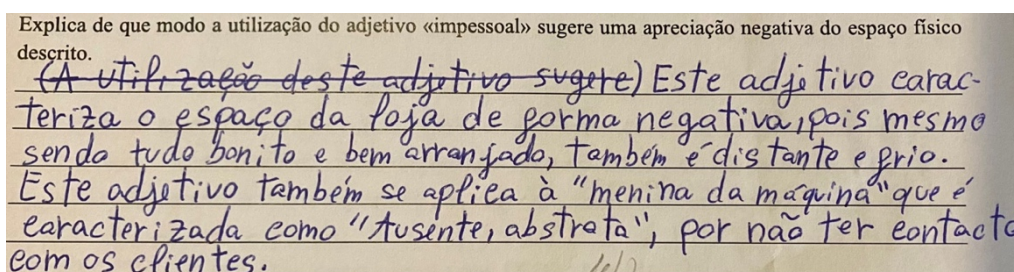 Explica de que modo a utilização do adjetivo «impessoal» sugere uma apreciação negativa do espaço físico
descrito.
(A utilização deste adjetivo sugere) Este adjetivo carac-
teriza o espaço da loja de forma negativa, pois mesmo
sendo tudo bonito e bem arranjado, também é distante e frio.
Este adjetivo também se aplica à "menina da máquina" que é
caracterizada como "Ausente, abstrata", por não ter contacto
com os clientes.